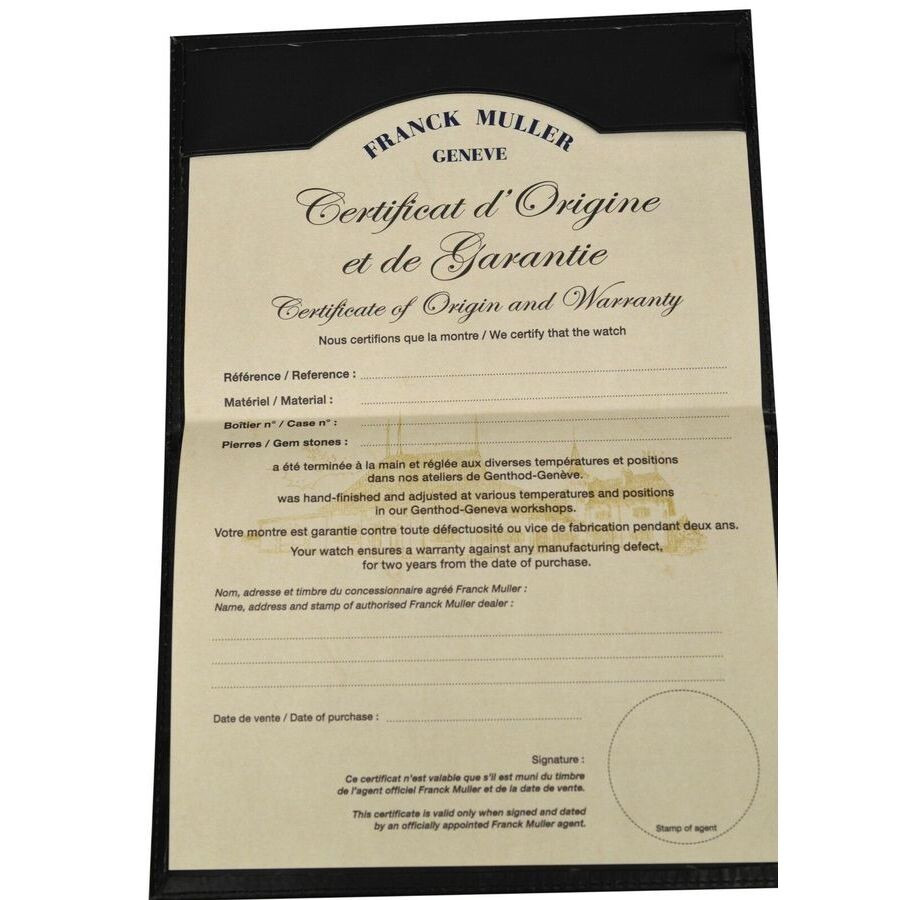 FRANCK MULLER
GENEVE
Certificat d'Origine
et de Garantie
Certificate of Origin and Warranty
Nous certifions que la montre / We certify that the watch
Référence / Reference :
Matériel / Material :
Boîtier n° / Case n° :
Pierres / Gem stones :
a été terminée à la main et réglée aux diverses températures et positions
dans nos ateliers de Genthod-Genève.
was hand-finished and adjusted at various temperatures and positions
in our Genthod-Geneva workshops.
Votre montre est garantie contre toute défectuosité ou vice de fabrication pendant deux ans.
Your watch ensures a warranty against any manufacturing defect,
for two years from the date of purchase.
Nom, adresse et timbre du concessionnaire agréé Franck Muller :
Name, address and stamp of authorised Franck Muller dealer :
Date de vente / Date of purchase :
Signature :
Ce certificat n'est valable que s'il est muni du timbre
de l'agent officiel Franck Muller et de la date de vente.
This certificate is valid only when signed and dated
by an officially appointed Franck Muller agent.
Stamp of agent